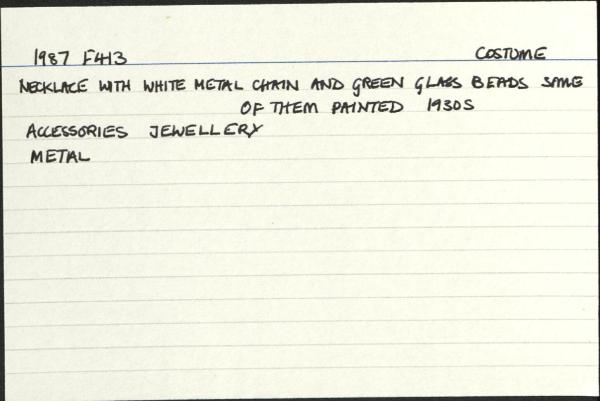 1987 F413 COSTUME
NECKLACE WITH WHITE METAL CHAIN AND GREEN GLASS BEADS SOME
OF THEM PAINTED 1930S
ACCESSORIES JEWELLERY
METAL